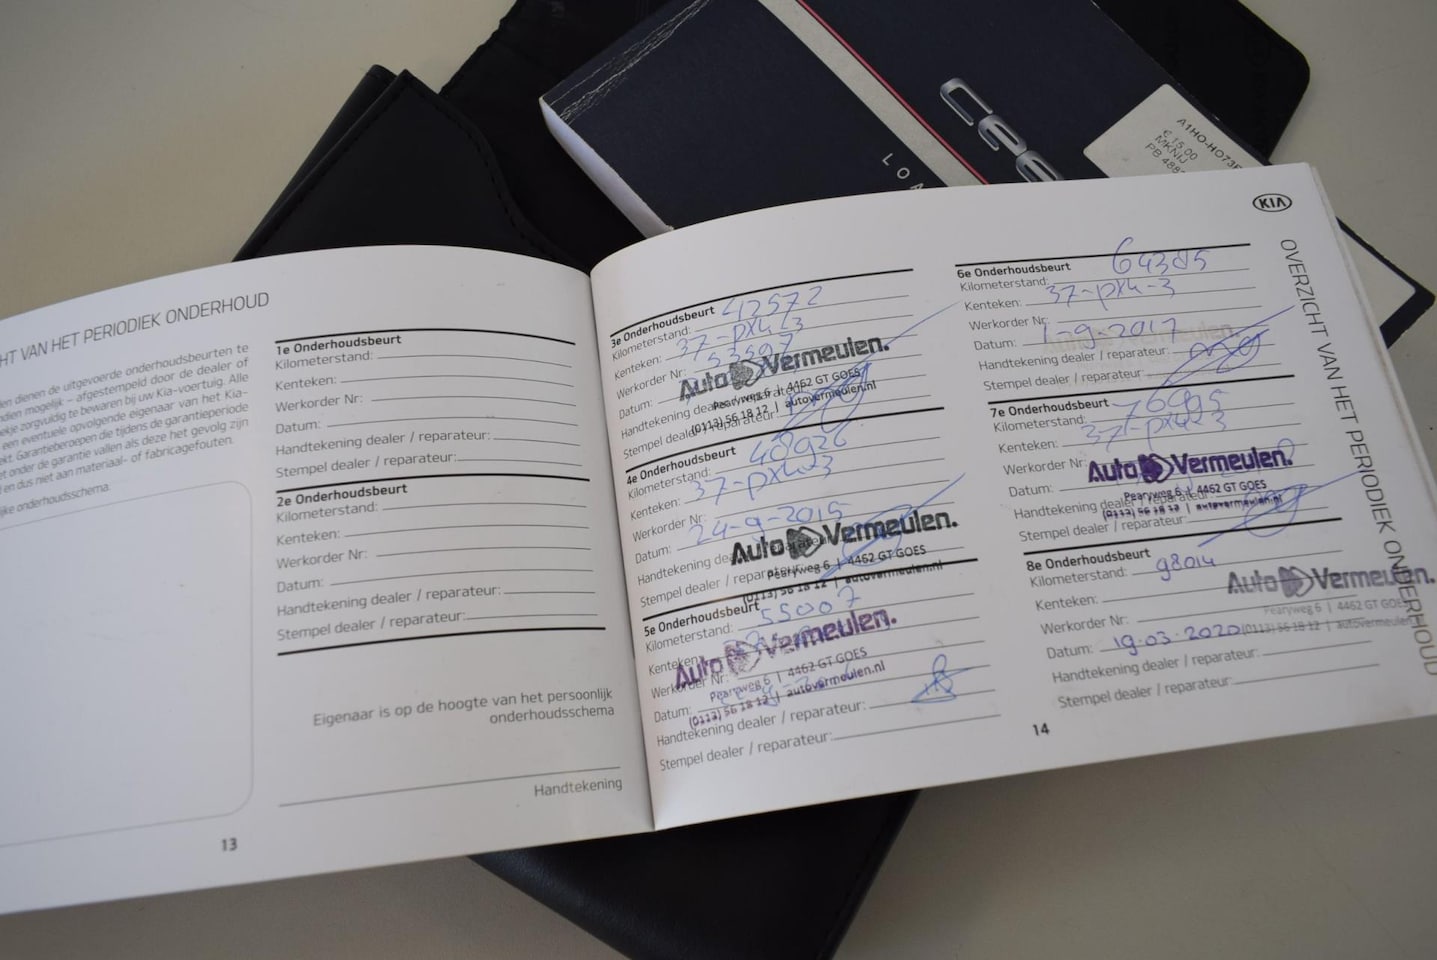 HT VAN HET PERIODIEK ONDERHOUD
en dienen de uitgevoerde onderhoudsbeurten te
dien mogelijk – afgestempeld door de dealer of
ekje zorgvuldig te bewaren bij uw Kia-voertuig. Alle
een eventuele opvolgende eigenaar van het Kia-
ekt. Garantieberoepen die tijdens de garantieperiode
et onder de garantie vallen als deze het gevolg zijn
en dus niet aan materiaal- of fabricagefouten.
ijke onderhoudsschema:
1e Onderhoudsbeurt
Kilometerstand:
Kenteken:
Werkorder Nr:
Datum:
Handtekening dealer / reparateur:
Stempel dealer / reparateur:
2e Onderhoudsbeurt
Kilometerstand:
Kenteken:
Werkorder Nr:
Datum:
Handtekening dealer / reparateur:
Stempel dealer / reparateur:
Eigenaar is op de hoogte van het persoonlijk
onderhoudsschema
Handtekening
13
3e Onderhoudsbeurt
Kilometerstand: 42572
Kenteken: 37-PX4-3
Werkorder Nr:
Datum:
Handtekening dealer / reparateur:
Stempel dealer / reparateur:
Auto Vermeulen.
Pearyweg 6 | 4462 GT GOES
(0113) 56 18 12 | autovermeulen.nl
4e Onderhoudsbeurt
Kilometerstand: 48926
Kenteken: 37-PX4-3
Werkorder Nr:
Datum: 24-9-2015
Handtekening dealer / reparateur:
Stempel dealer / reparateur:
Auto Vermeulen.
Pearyweg 6 | 4462 GT GOES
(0113) 56 18 12 | autovermeulen.nl
5e Onderhoudsbeurt
Kilometerstand: 55007
Kenteken:
Werkorder Nr:
Datum:
Handtekening dealer / reparateur:
Stempel dealer / reparateur:
Auto Vermeulen.
Pearyweg 6 | 4462 GT GOES
(0113) 56 18 12 | autovermeulen.nl
6e Onderhoudsbeurt
Kilometerstand: 64385
Kenteken: 37-PX4-3
Werkorder Nr:
Datum: 1-9-2017
Handtekening dealer / reparateur:
Stempel dealer / reparateur:
7e Onderhoudsbeurt
Kilometerstand: 76995
Kenteken: 37-PX4-3
Werkorder Nr:
Datum:
Handtekening dealer / reparateur:
Stempel dealer / reparateur:
Auto Vermeulen.
Pearyweg 6 | 4462 GT GOES
(0113) 56 18 12 | autovermeulen.nl
8e Onderhoudsbeurt
Kilometerstand: 98014
Kenteken:
Werkorder Nr:
Datum: 19-03-2020
Handtekening dealer / reparateur:
Stempel dealer / reparateur:
Auto Vermeulen.
Pearyweg 6 | 4462 GT GOES
(0113) 56 18 12 | autovermeulen.nl
14
KIA
OVERZICHT VAN HET PERIODIEK ONDERHOUD
cee
LOA
A1HO-HO73E
€ 15,00
MKNIJ
PB 488